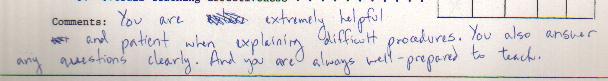 Comments: You are extremely helpful
and patient when explaining difficult procedures. You also answer
any questions clearly. And you are always well-prepared to teach.